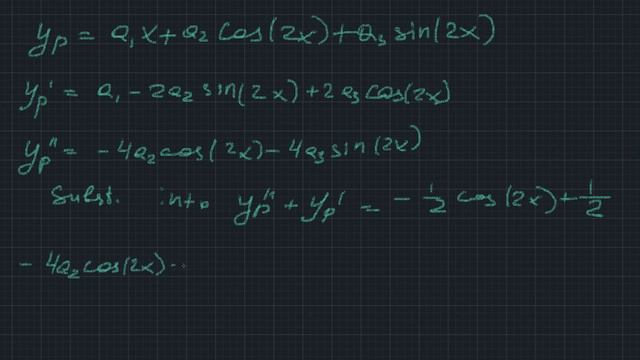 yp = a₁x + a₂ cos(2x) + a₃ sin(2x)
yp' = a₁ - 2a₂ sin(2x) + 2a₃ cos(2x)
yp'' = - 4a₂ cos(2x) - 4a₃ sin(2x)
Subst. into yp'' + yp' = - 1/2 cos(2x) + 1/2
- 4a₂ cos(2x) -